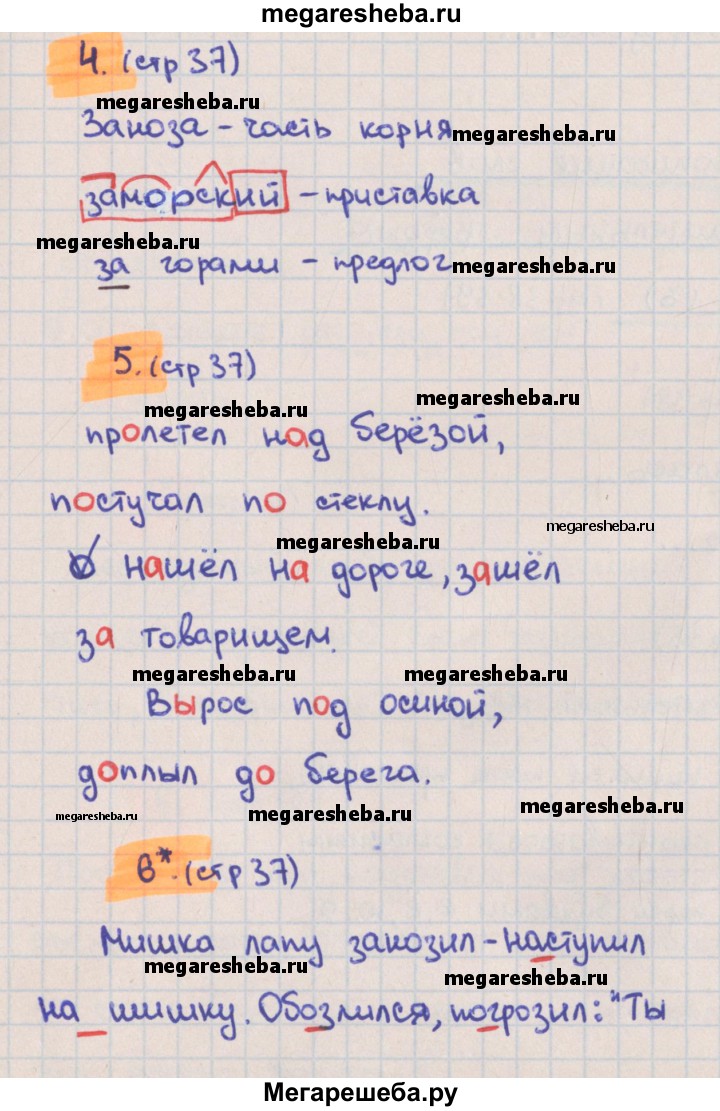 megaresheba.ru
4. (стр 37)
megaresheba.ru
Заноза – часть корня
megaresheba.ru
заморский – приставка
megaresheba.ru
за горами – предлог
megaresheba.ru
5. (стр 37)
megaresheba.ru
megaresheba.ru
пролетел над берёзой,
постучал по стеклу.
megaresheba.ru
megaresheba.ru
нашёл на дороге, зашёл
за товарищем.
megaresheba.ru
megaresheba.ru
Вырос под осиной,
доплыл до берега.
megaresheba.ru
megaresheba.ru
megaresheba.ru
6*. (стр 37)
Мишка лапу занозил – наступил
megaresheba.ru
megaresheba.ru
на шишку. Обозлился, погрозил: "Ты
Мегарешеба.ру